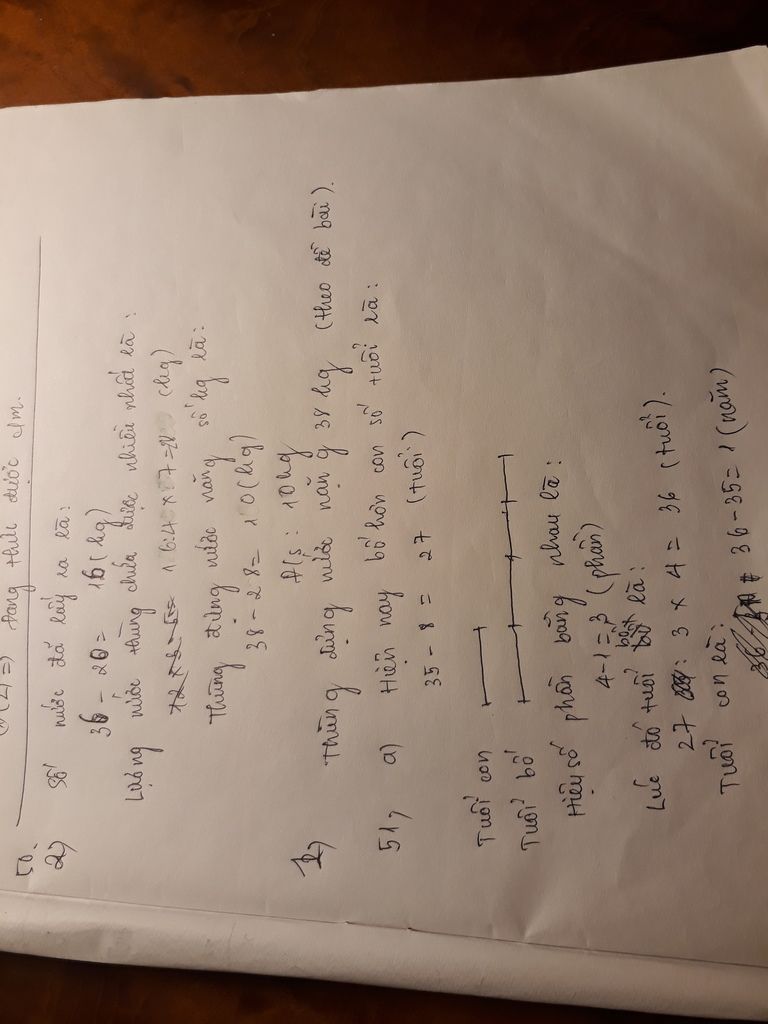 =) Đẳng thức được c/m.
50.
2, Số nước đã lấy ra là:
36 - 20 = 16 (kg)
Lượng nước thùng chứa được nhiều nhất là:
16:4 × 7 = 28 (kg)
Thùng đựng nước nặng số kg là:
38 - 28 = 10 (kg)
Đ/s: 10kg
1, Thùng đựng nước nặng 38 kg (theo đề bài).
51, a) Hiện nay bố hơn con số tuổi là:
35 - 8 = 27 (tuổi)
Tuổi con
Tuổi bố
Hiệu số phần bằng nhau là:
4-1=3 (phần)
Lúc đó tuổi bố là:
27 : 3 × 4 = 36 (tuổi).
Tuổi con là:
36-35=1 (năm)